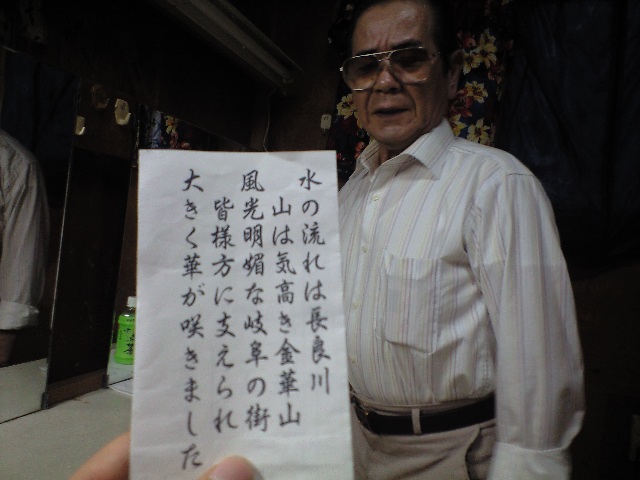 水の流れは長良川
山は気高き金華山
風光明媚な岐阜の街
皆様方に支えられ
大きく華が咲きました